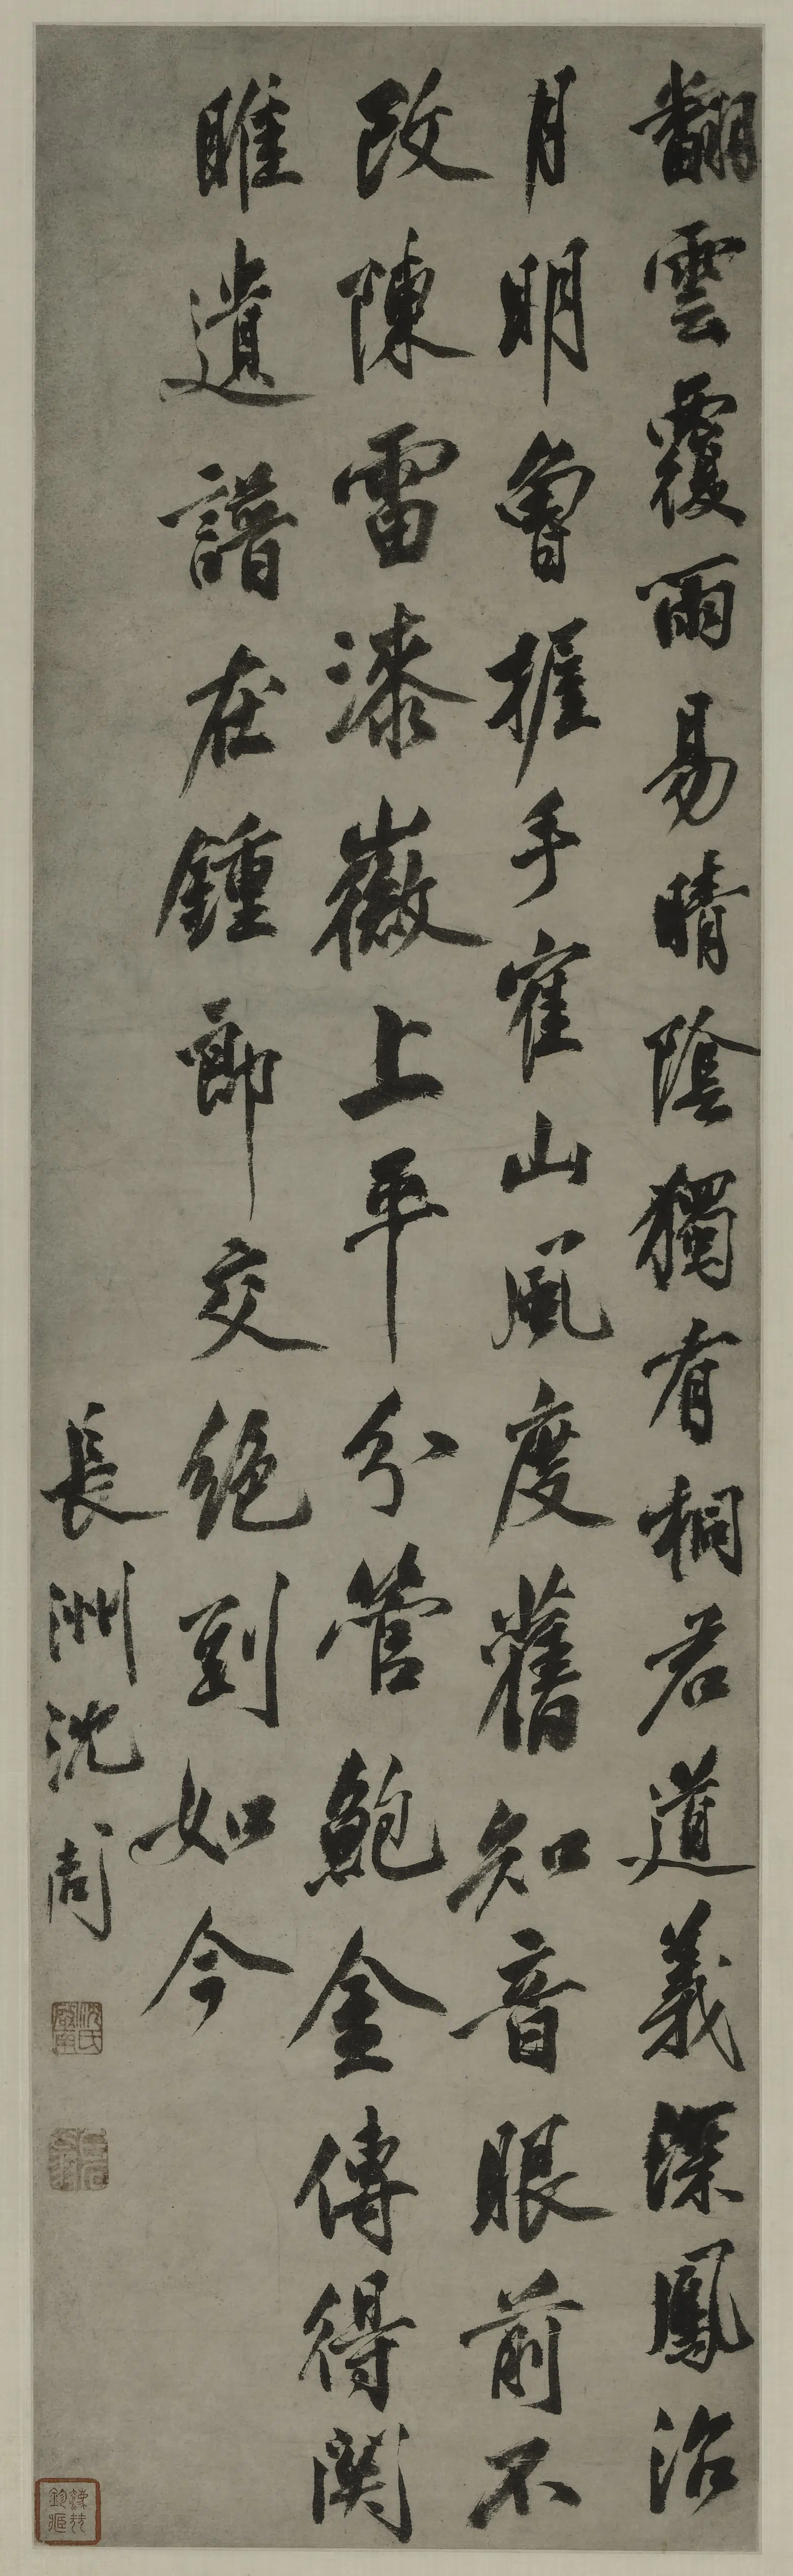 翻雲覆雨易晴陰獨有桐君道義深鳳沼
月明魯握手寉山風度舊知音眼前不
改陳雷漆徽上平分管鮑金傳得関
雎遺譜在鍾郎交絕到如今
長洲沈周
沈氏啟南